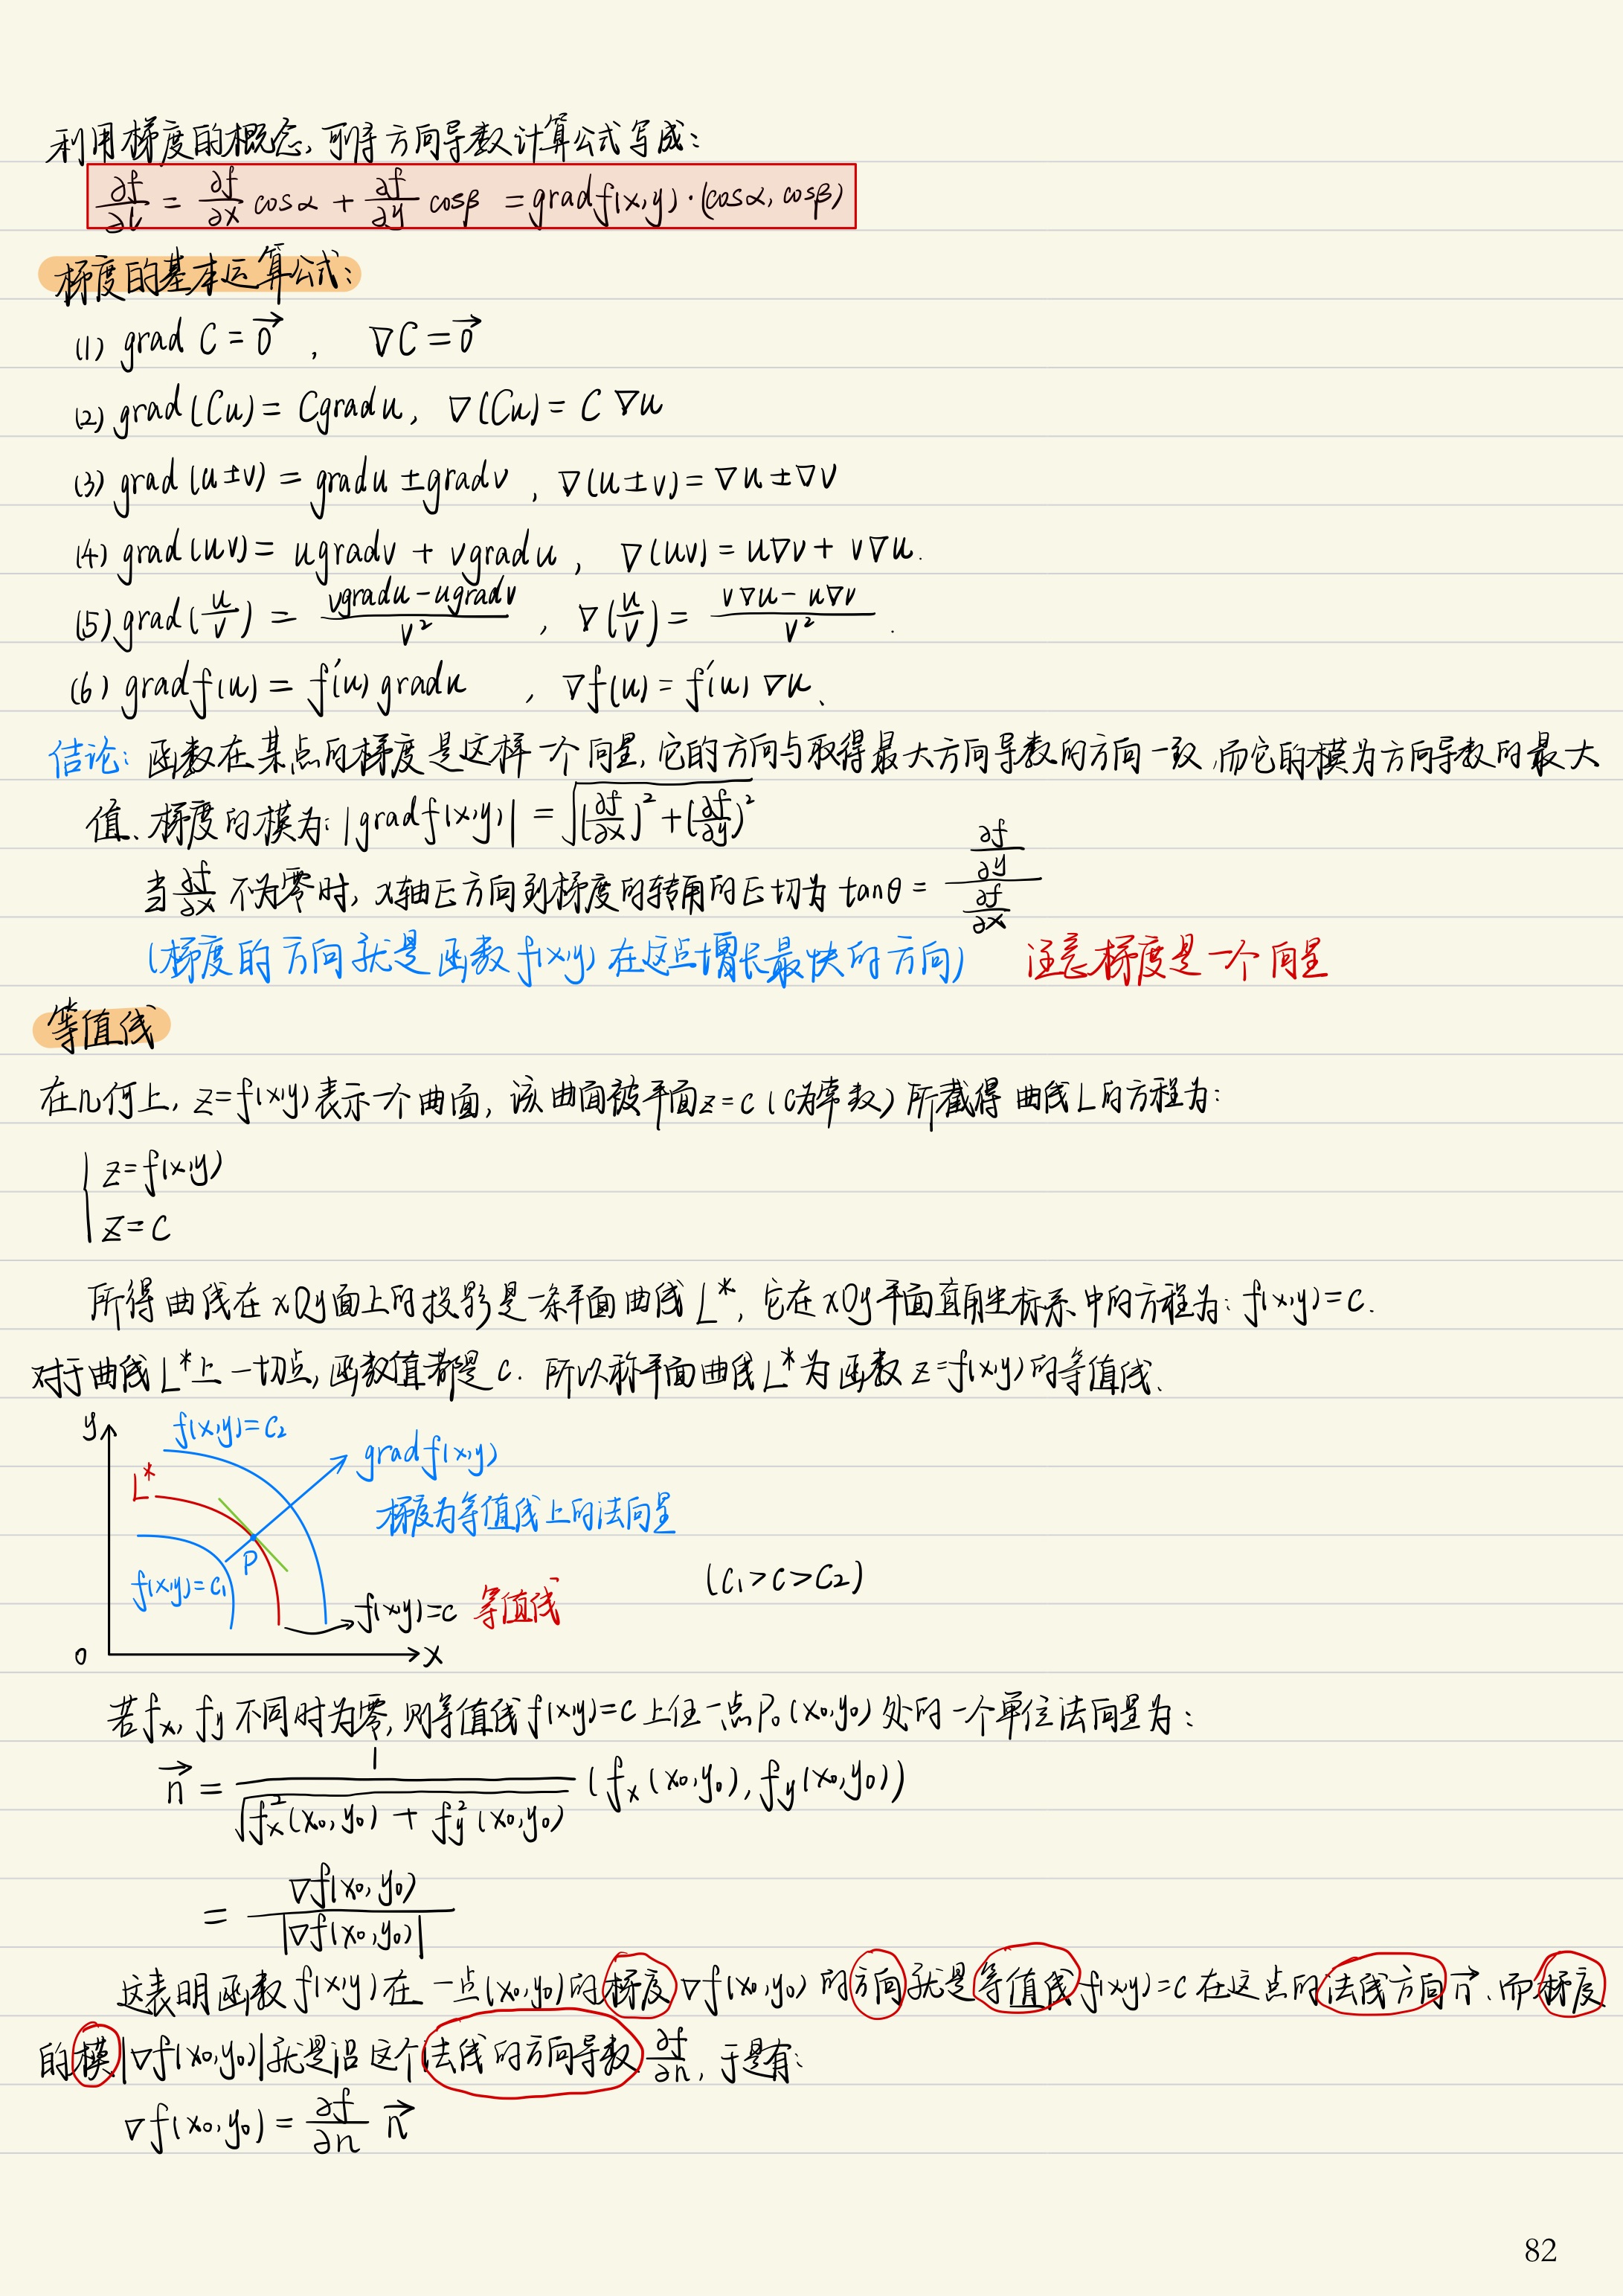 利用梯度的概念,可将方向导数计算公式写成:
∂f/∂l = ∂f/∂x cosα + ∂f/∂y cosβ = gradf(x,y)·(cosα, cosβ)
梯度的基本运算公式:
(1) grad C = 0⃗ , ∇C = 0⃗
(2) grad(Cu) = Cgradu, ∇(Cu) = C∇u
(3) grad(u±v) = gradu ± gradv , ∇(u±v) = ∇u ± ∇v
(4) grad(uv) = ugradv + vgradu , ∇(uv) = u∇v + v∇u.
(5) grad(u/v) = (vgradu - ugradv)/v² , ∇(u/v) = (v∇u - u∇v)/v² .
(6) gradf(u) = f′(u)gradu , ∇f(u) = f′(u)∇u.
结论: 函数在某点的梯度是这样一个向量,它的方向与取得最大方向导数的方向一致,而它的模为方向导数的最大
值. 梯度的模为: |gradf(x,y)| = √((∂f/∂x)² + (∂f/∂y)²)
当 ∂f/∂x 不为零时, x轴正方向到梯度的转角的正切为 tanθ = (∂f/∂y)/(∂f/∂x)
(梯度的方向就是函数f(x,y)在这点增长最快的方向) 注意梯度是一个向量
等值线
在几何上, z=f(x,y)表示一个曲面, 该曲面被平面z=c (c为常数) 所截得曲线L的方程为:
z=f(x,y)
z=c
所得曲线在xOy面上的投影是一条平面曲线L*, 它在xOy平面直角坐标系中的方程为: f(x,y)=c.
对于曲线L*上一切点,函数值都是c. 所以称平面曲线L*为函数z=f(x,y)的等值线.
y
f(x,y)=c₂
gradf(x,y)
L*
梯度为等值线上的法向量
P
f(x,y)=c₁
(c₁>c>c₂)
f(x,y)=c 等值线
0
x
若fx, fy不同时为零,则等值线f(x,y)=c上任一点P₀(x₀,y₀)处的一个单位法向量为:
n⃗ = 1/√(fx²(x₀,y₀) + fy²(x₀,y₀)) (fx(x₀,y₀), fy(x₀,y₀))
= ∇f(x₀,y₀)/|∇f(x₀,y₀)|
这表明函数f(x,y)在一点(x₀,y₀)的梯度∇f(x₀,y₀)的方向就是等值线f(x,y)=c在这点的法线方向n⃗,而梯度
的模|∇f(x₀,y₀)|就是沿这个法线的方向导数 ∂f/∂n, 于是有:
∇f(x₀,y₀) = ∂f/∂n n⃗
82